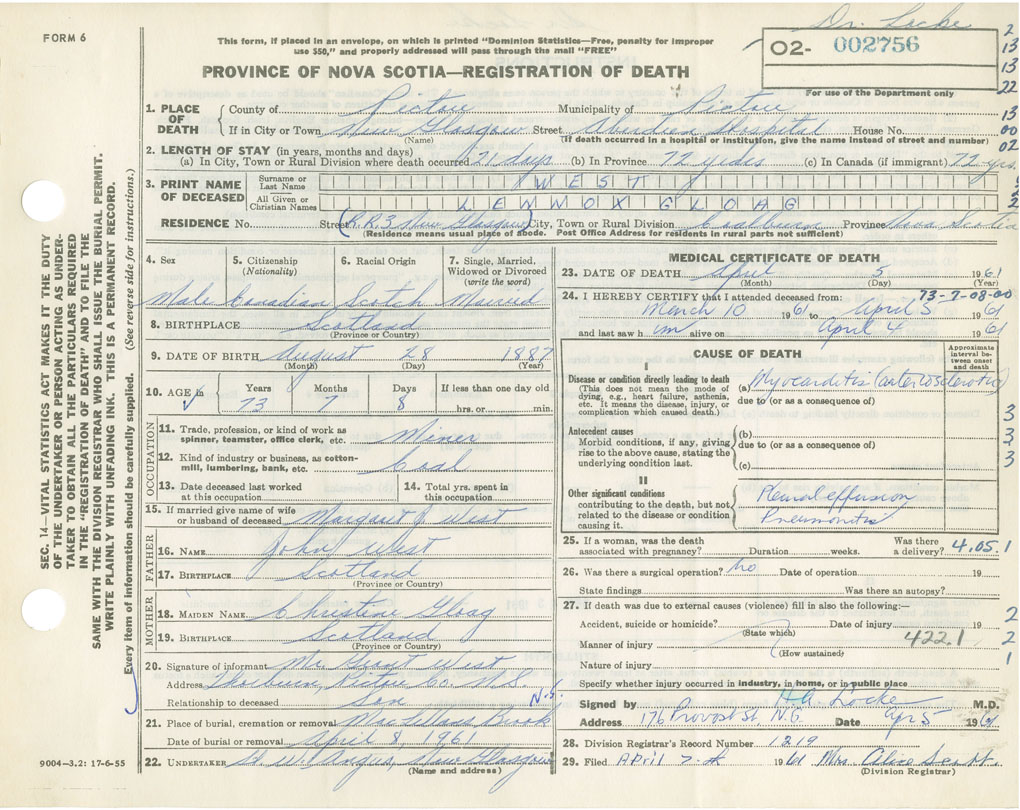 FORM 6
This form, if placed in an envelope, on which is printed "Dominion Statistics—Free, penalty for improper
use $50," and properly addressed will pass through the mail "FREE"
Dr. Locke
O2- 002756
For use of the Department only
PROVINCE OF NOVA SCOTIA—REGISTRATION OF DEATH
1. PLACE OF DEATH
County of Pictou Municipality of Pictou
If in City or Town New Glasgow Street Aberdeen Hospital House No.
(Name) (If death occurred in a hospital or institution, give the name instead of street and number)
2. LENGTH OF STAY (in years, months and days)
(a) In City, Town or Rural Division where death occurred 21 days (b) In Province 72 years (c) In Canada (if immigrant) 72 yrs.
3. PRINT NAME OF DECEASED
Surname or Last Name WEST
All Given or Christian Names LENNOX GLOAG
RESIDENCE No. Street (R.R.3 New Glasgow) City, Town or Rural Division Coalburn Province Nova Scotia
(Residence means usual place of abode. Post Office Address for residents in rural parts not sufficient)
4. Sex 5. Citizenship (Nationality) 6. Racial Origin 7. Single, Married, Widowed or Divorced (write the word)
Male Canadian Scotch Married
8. BIRTHPLACE Scotland
(Province or Country)
9. DATE OF BIRTH August 28 1887
(Month) (Day) (Year)
10. AGE in Years Months Days If less than one day old
73 7 8 hrs. or min.
OCCUPATION
11. Trade, profession, or kind of work as spinner, teamster, office clerk, etc. Miner
12. Kind of industry or business, as cotton-mill, lumbering, bank, etc. Coal
13. Date deceased last worked at this occupation
14. Total yrs. spent in this occupation
15. If married give name of wife or husband of deceased Margaret J West
FATHER
16. NAME John West
17. BIRTHPLACE Scotland
(Province or Country)
MOTHER
18. MAIDEN NAME Christine Gloag
19. BIRTHPLACE Scotland
(Province or Country)
20. Signature of informant Mr Grant West
Address Thorburn, Pictou Co. N.S.
Relationship to deceased Son N.S.
21. Place of burial, cremation or removal MacLellans Brook
Date of burial or removal April 8, 1961
22. UNDERTAKER New Glasgow
(Name and address)
MEDICAL CERTIFICATE OF DEATH
23. DATE OF DEATH April 5 1961
(Month) (Day) (Year)
24. I HEREBY CERTIFY that I attended deceased from: 73-7-08-00
March 10 1961 to April 5 1961
and last saw h im alive on April 4 1961
CAUSE OF DEATH
Approximate interval between onset and death
I
Disease or condition directly leading to death
(This does not mean the mode of dying, e.g., heart failure, asthenia, etc. It means the disease, injury, or complication which caused death.)
(a) Myocarditis (arteriosclerotic)
due to (or as a consequence of)
Antecedent causes
Morbid conditions, if any, giving rise to the above cause, stating the underlying condition last.
(b)
due to (or as a consequence of)
(c)
II
Other significant conditions contributing to the death, but not related to the disease or condition causing it.
Pleural effusion
Pneumonitis
25. If a woman, was the death associated with pregnancy? Duration weeks. Was there a delivery? 4.05.1
26. Was there a surgical operation? No Date of operation 19
State findings Was there an autopsy?
27. If death was due to external causes (violence) fill in also the following:—
Accident, suicide or homicide? Date of injury 19
(State which)
Manner of injury 422.1
(How sustained)
Nature of injury
Specify whether injury occurred in industry, in home, or in public place
Signed by H.A. Locke M.D.
Address 176 Provost St. N.G. Date Apr 5 1961
28. Division Registrar's Record Number 1219
29. Filed April 7th 1961 Mrs. Alice Scott.
(Division Registrar)
SEC. 14—VITAL STATISTICS ACT MAKES IT THE DUTY
OF THE UNDERTAKER OR PERSON ACTING AS UNDER-
TAKER TO OBTAIN ALL THE PARTICULARS REQUIRED
IN THE "REGISTRATION OF DEATH" AND TO FILE THE
SAME WITH THE DIVISION REGISTRAR WHO SHALL ISSUE THE BURIAL PERMIT.
WRITE PLAINLY WITH UNFADING INK. THIS IS A PERMANENT RECORD.
Every item of information should be carefully supplied. (See reverse side for instructions.)
9004-3.2: 17-6-55
2
13
13
22
13
00
02
3
3
3
3
1
2
2
1